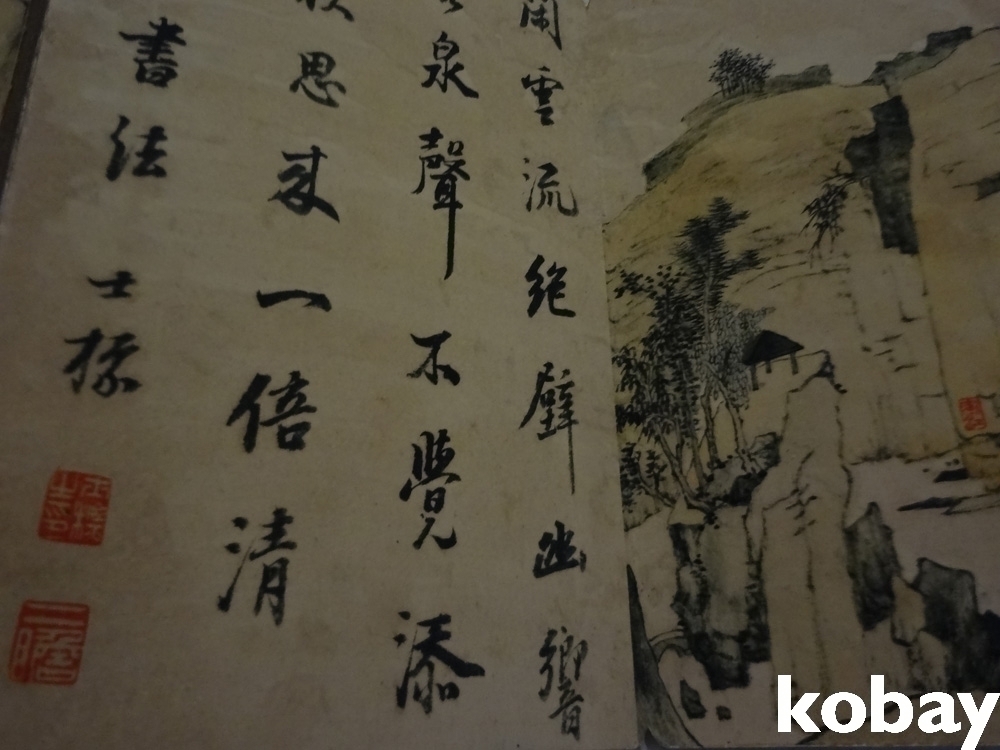 雲流絶壁幽響
泉聲不覺添
思來一倍清
書法
士標
二瞻
kobay